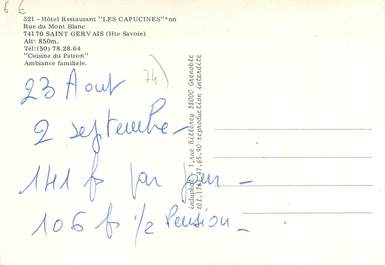 6 6
321 - Hôtel Restaurant "LES CAPUCINES"*nn
Rue du Mont Blanc
74170 SAINT GERVAIS (Hte Savoie)
Alt: 850m.
Tél:(50) 78.28.64
"Cuisine du Patron"
Ambiance familiale.
74)
23 Aout
2 septembre -
141 f par jour -
106 f 1/2 Pension -
induphot 1, rue Billerey 38000 Grenoble
tél. 87.65.90 reproduction interdite